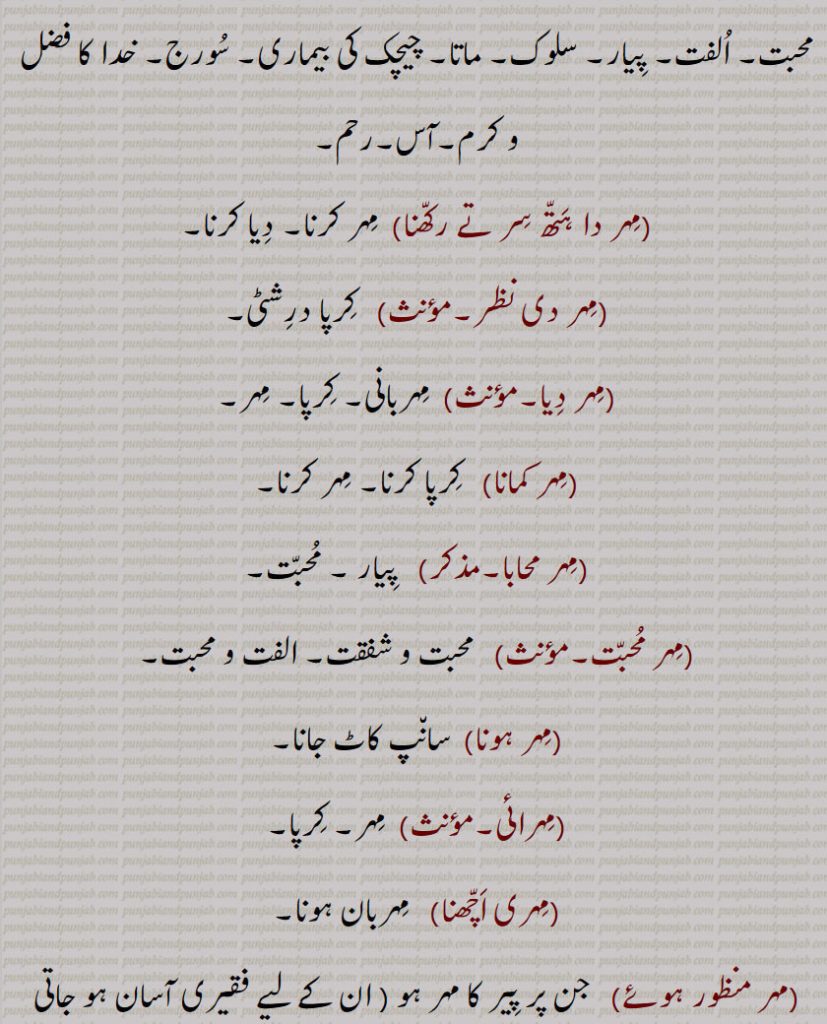 محبت۔ اُلفت۔ پِیار۔ سلوک۔ ماتا۔ چیچک کی بیماری۔ سُورج۔ خدا کا فضل
و کرم۔آس۔رحم۔
(مِہر دا ہَتھّ سِر تے رکھّنا) مِہر کرنا۔ دِیا کرنا۔
(مِہر دی نظر۔مؤنث) کِرپا درِشٹی۔
(مِہر دِیا۔مؤنث) مِہربانی۔ کِرپا۔ مِہر۔
(مِہر کمانا) کِرپا کرنا۔ مِہر کرنا۔
(مِہر محابا۔مذکر) پِیار ۔ مُحبّت۔
(مِہر مُحبّت۔مؤنث) محبت و شفقت۔ الفت و محبت۔
(مِہر ہونا) سانّپ کاٹ جانا۔
(مِہرائی۔مؤنث) مِہر۔ کِرپا۔
(مِہری اَچّھنا) مِہربان ہونا۔
(مہر منظور ہوئے) جن پر پِیر کا مہر ہو ( ان کے لیے فقیری آسان ہو جاتی